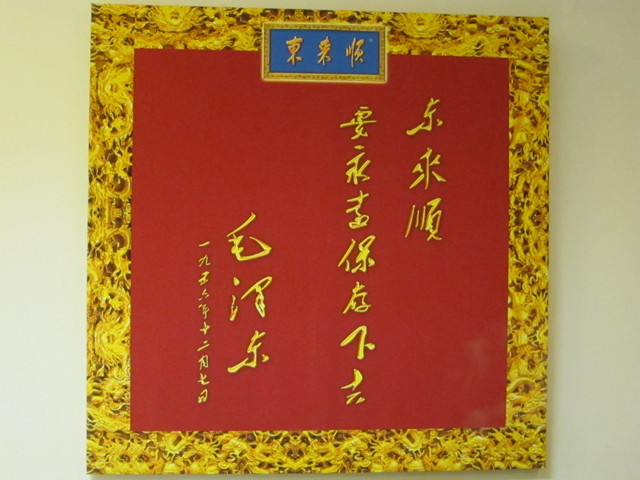 東來順
东來順
要永遠保存下去
毛泽东
一九五六年十二月七日